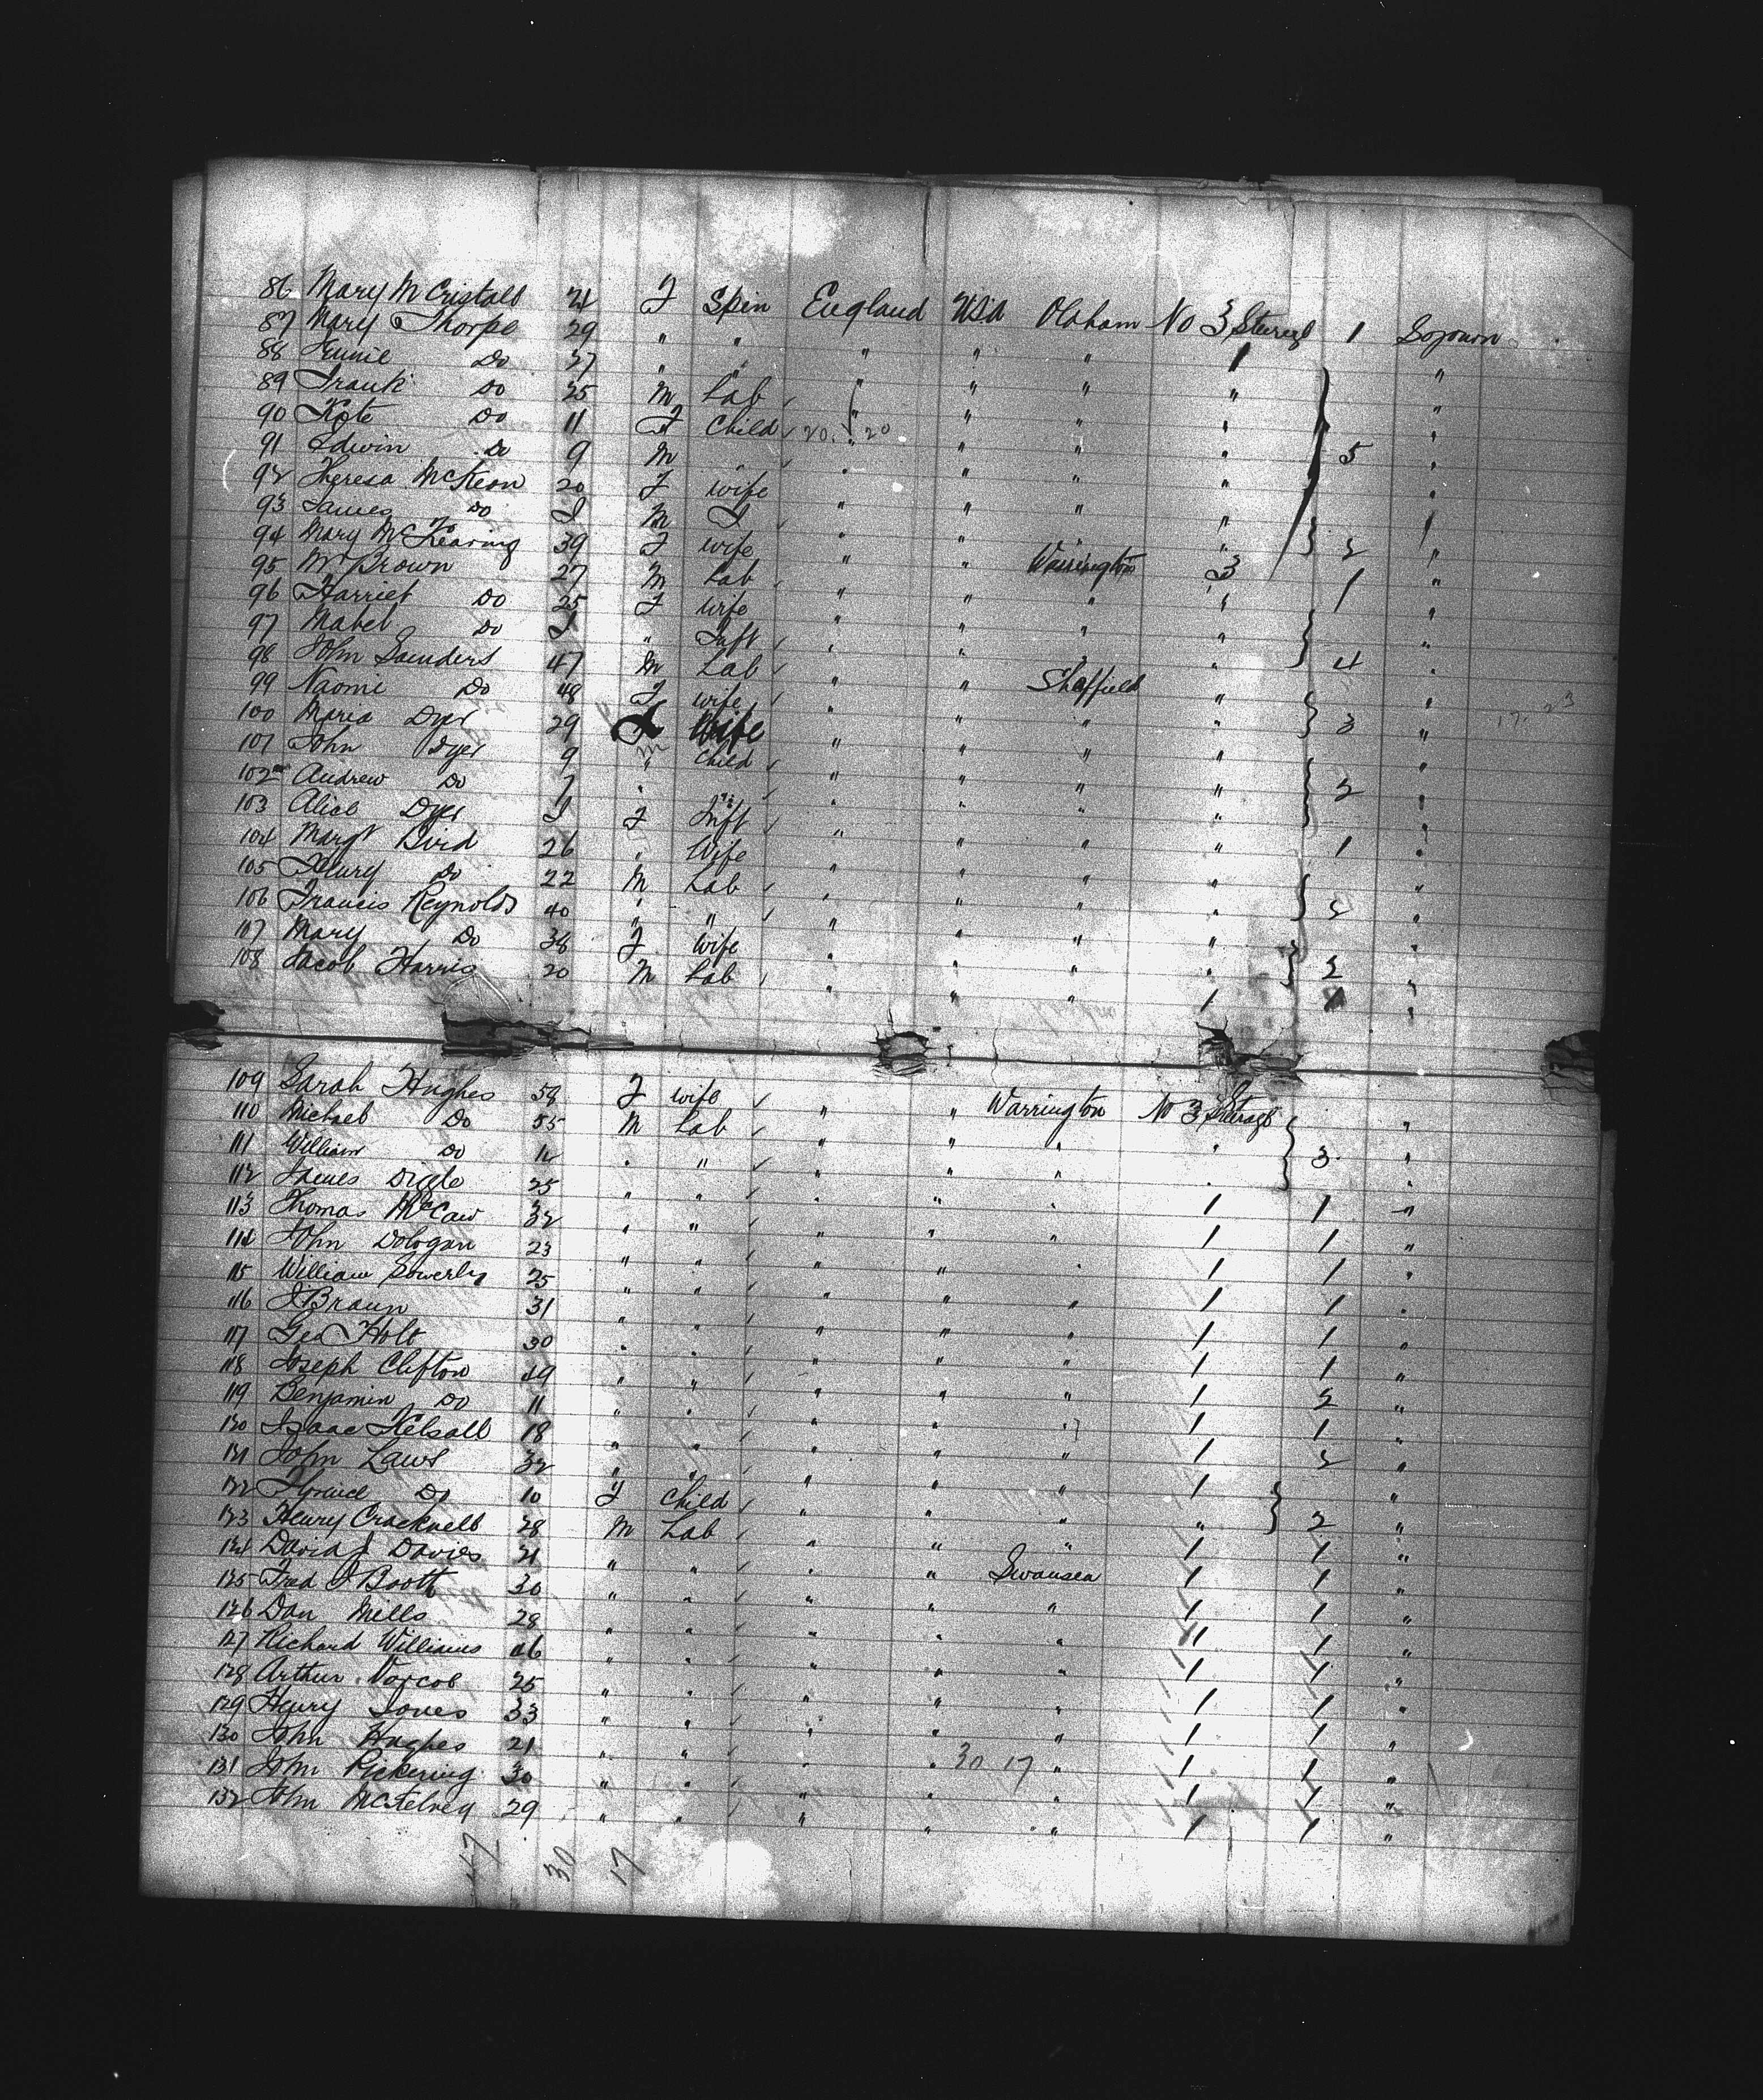 86 Mary McCristall 21 F Spin England USA Oldham No 3 Steerage 1 Sojourn
87 Mary Thorpe 29 " " " " " 1 "
88 Do 27 " " " " " " "
89 Frank Do 25 M Lab " " " " "
90 Kate Do 11 F Child 20. " 20 " " " 5 "
91 Edwin Do 9 M " " " " " "
92 Theresa McKeon 20 F wife " " " " "
93 James Do I M I " " " " 2 "
94 Mary 39 F wife " " Warrington 3 1 "
95 Wm Brown 27 M Lab " " " " "
96 Harriet Do 25 F wife " " " " "
97 Mabel Do I " Inft " " " " 4 "
98 John Saunders 47 M Lab " " Sheffield " "
99 Naomi Do 48 F wife " " " " 3 " 17. 23
100 Maria Dyer 29 F Wife " " " " "
101 John Dyer 9 m Child " " " " 2 "
102 Andrew Do 7 " " " " " " "
103 Alice Dyer I F Inft " " " " 1 "
104 Margt Bird 26 " Wife " " " " "
105 Henry Do 22 M Lab " " " " 2 "
106 Francis Reynolds 40 " " " " " " "
107 Mary Do 38 F wife " " " " 2 "
108 Jacob Harris 20 M Lab " " " 1 1 "
109 Sarah Hughes 58 F wife " " Warrington No 3 Steerage "
110 Michael Do 55 M Lab " " " " 3 "
111 William Do 12 " " " " " "
112 James Diggle 25 " " " " " 1 1 "
113 Thomas McCaw 32 " " " " " 1 1 "
114 John Dologan 23 " " " " " 1 1 "
115 William Sowerby 25 " " " " " 1 1 "
116 J Braun 31 " " " " " 1 1 "
117 Geo Holt 30 " " " " " 1 1 "
118 Joseph Clifton 49 " " " " " 1 2 "
119 Benjamin Do 11 " " " " " 1 1 "
120 Isaac Kelsall 18 " " " " " 1 2 "
121 John Laws 32 " " " " " 1 "
122 Do 10 F Child " " " " 2 "
123 Henry Cracknell 28 M Lab " " " 1 1 "
124 David J Davies 21 " " " " Swansea 1 1 "
125 Fred J Booth 30 " " " " " 1 1 "
126 Dan Mills 28 " " " " " 1 1 "
127 Richard Williams 26 " " " " " 1 1 "
128 Arthur 25 " " " " " 1 1 "
129 Henry Jones 33 " " " " " 1 1 "
130 John Hughes 21 " " " 30 17 " 1 1 "
131 John Pickering 30 " " " " " 1 1 "
132 John 29 " " " " " 1 1 "
47 30 17